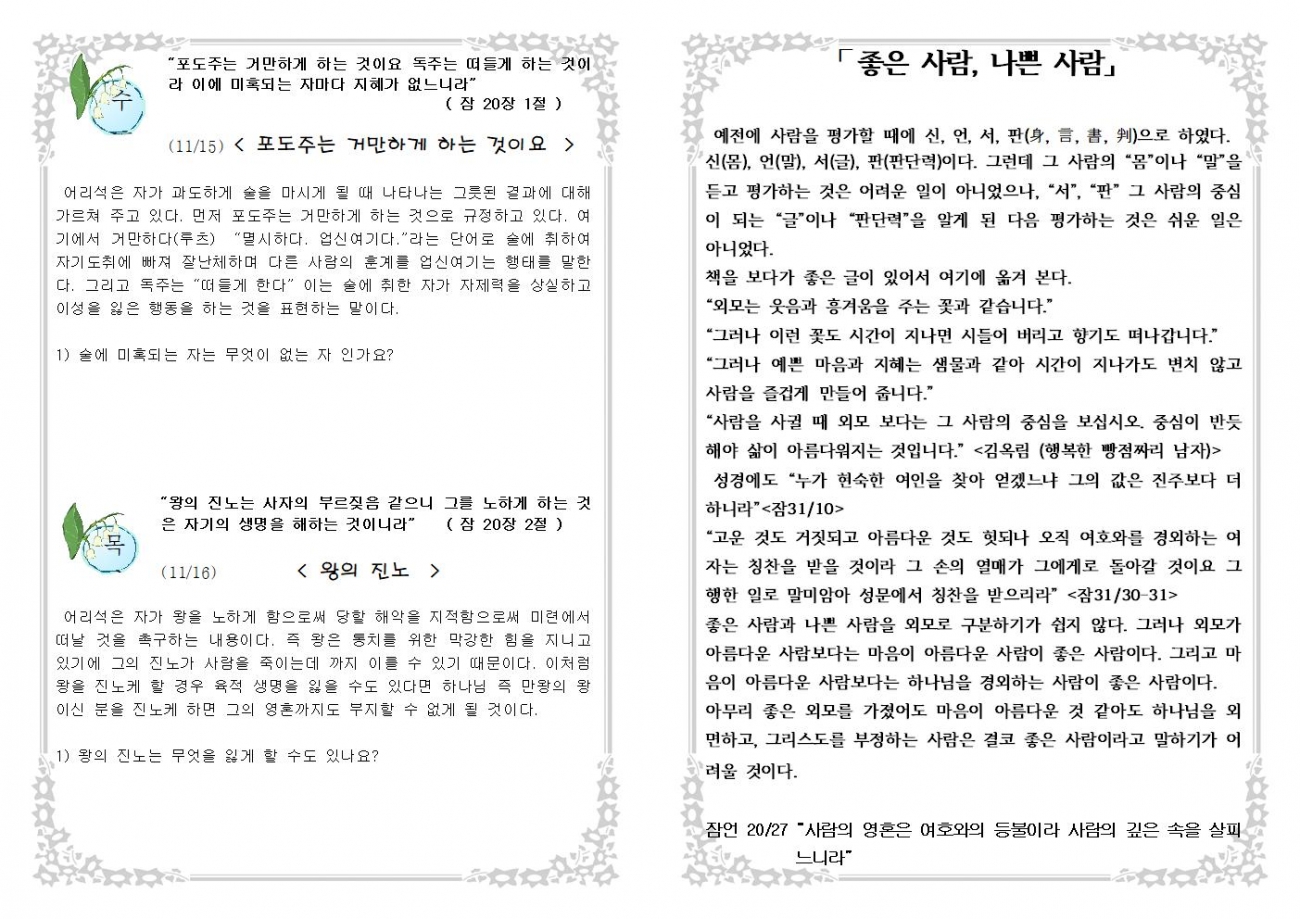 “포도주는 거만하게 하는 것이요 독주는 떠들게 하는 것이
라 이에 미혹되는 자마다 지혜가 없느니라”
( 잠 20장 1절 )
수
(11/15) < 포도주는 거만하게 하는 것이요 >
어리석은 자가 과도하게 술을 마시게 될 때 나타나는 그릇된 결과에 대해
가르쳐 주고 있다. 먼저 포도주는 거만하게 하는 것으로 규정하고 있다. 여
기에서 거만하다(루츠) “멸시하다. 업신여기다.”라는 단어로 술에 취하여
자기도취에 빠져 잘난체하며 다른 사람의 훈계를 업신여기는 행태를 말한
다. 그리고 독주는 “떠들게 한다” 이는 술에 취한 자가 자제력을 상실하고
이성을 잃은 행동을 하는 것을 표현하는 말이다.
1) 술에 미혹되는 자는 무엇이 없는 자 인가요?
“왕의 진노는 사자의 부르짖음 같으니 그를 노하게 하는 것
은 자기의 생명을 해하는 것이니라” ( 잠 20장 2절 )
목
(11/16) < 왕의 진노 >
어리석은 자가 왕을 노하게 함으로써 당할 해악을 지적함으로써 미련에서
떠날 것을 촉구하는 내용이다. 즉 왕은 통치를 위한 막강한 힘을 지니고
있기에 그의 진노가 사람을 죽이는데 까지 이를 수 있기 때문이다. 이처럼
왕을 진노케 할 경우 육적 생명을 잃을 수도 있다면 하나님 즉 만왕의 왕
이신 분을 진노케 하면 그의 영혼까지도 부지할 수 없게 될 것이다.
1) 왕의 진노는 무엇을 잃게 할 수도 있나요?
「좋은 사람, 나쁜 사람」
예전에 사람을 평가할 때에 신, 언, 서, 판(身, 言, 書, 判)으로 하였다.
신(몸), 언(말), 서(글), 판(판단력)이다. 그런데 그 사람의 “몸”이나 “말”을
듣고 평가하는 것은 어려운 일이 아니었으나, “서”, “판” 그 사람의 중심
이 되는 “글”이나 “판단력”을 알게 된 다음 평가하는 것은 쉬운 일은
아니었다.
책을 보다가 좋은 글이 있어서 여기에 옮겨 본다.
“외모는 웃음과 흥겨움을 주는 꽃과 같습니다.”
“그러나 이런 꽃도 시간이 지나면 시들어 버리고 향기도 떠나갑니다.”
“그러나 예쁜 마음과 지혜는 샘물과 같아 시간이 지나가도 변치 않고
사람을 즐겁게 만들어 줍니다.”
“사람을 사귈 때 외모 보다는 그 사람의 중심을 보십시오. 중심이 반듯
해야 삶이 아름다워지는 것입니다.” <김옥림 (행복한 빵점짜리 남자)>
성경에도 “누가 현숙한 여인을 찾아 얻겠느냐 그의 값은 진주보다 더
하니라”<잠31/10>
“고운 것도 거짓되고 아름다운 것도 헛되나 오직 여호와를 경외하는 여
자는 칭찬을 받을 것이라 그 손의 열매가 그에게로 돌아갈 것이요 그
행한 일로 말미암아 성문에서 칭찬을 받으리라” <잠31/30-31>
좋은 사람과 나쁜 사람을 외모로 구분하기가 쉽지 않다. 그러나 외모가
아름다운 사람보다는 마음이 아름다운 사람이 좋은 사람이다. 그리고 마
음이 아름다운 사람보다는 하나님을 경외하는 사람이 좋은 사람이다.
아무리 좋은 외모를 가졌어도 마음이 아름다운 것 같아도 하나님을 외
면하고, 그리스도를 부정하는 사람은 결코 좋은 사람이라고 말하기가 어
려울 것이다.
잠언 20/27 “사람의 영혼은 여호와의 등불이라 사람의 깊은 속을 살피
느니라”